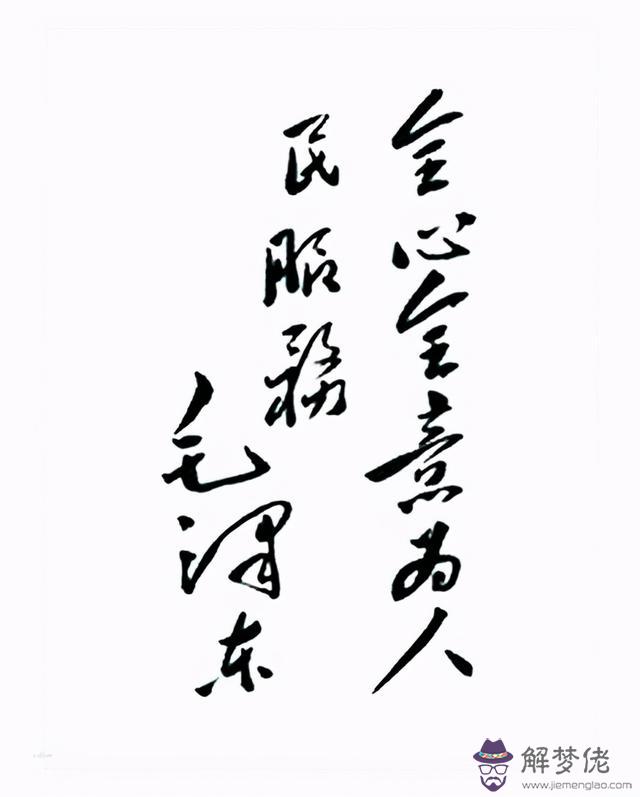 全心全意为人
民服務
毛泽东
解梦佬
www.jiemenglao.com